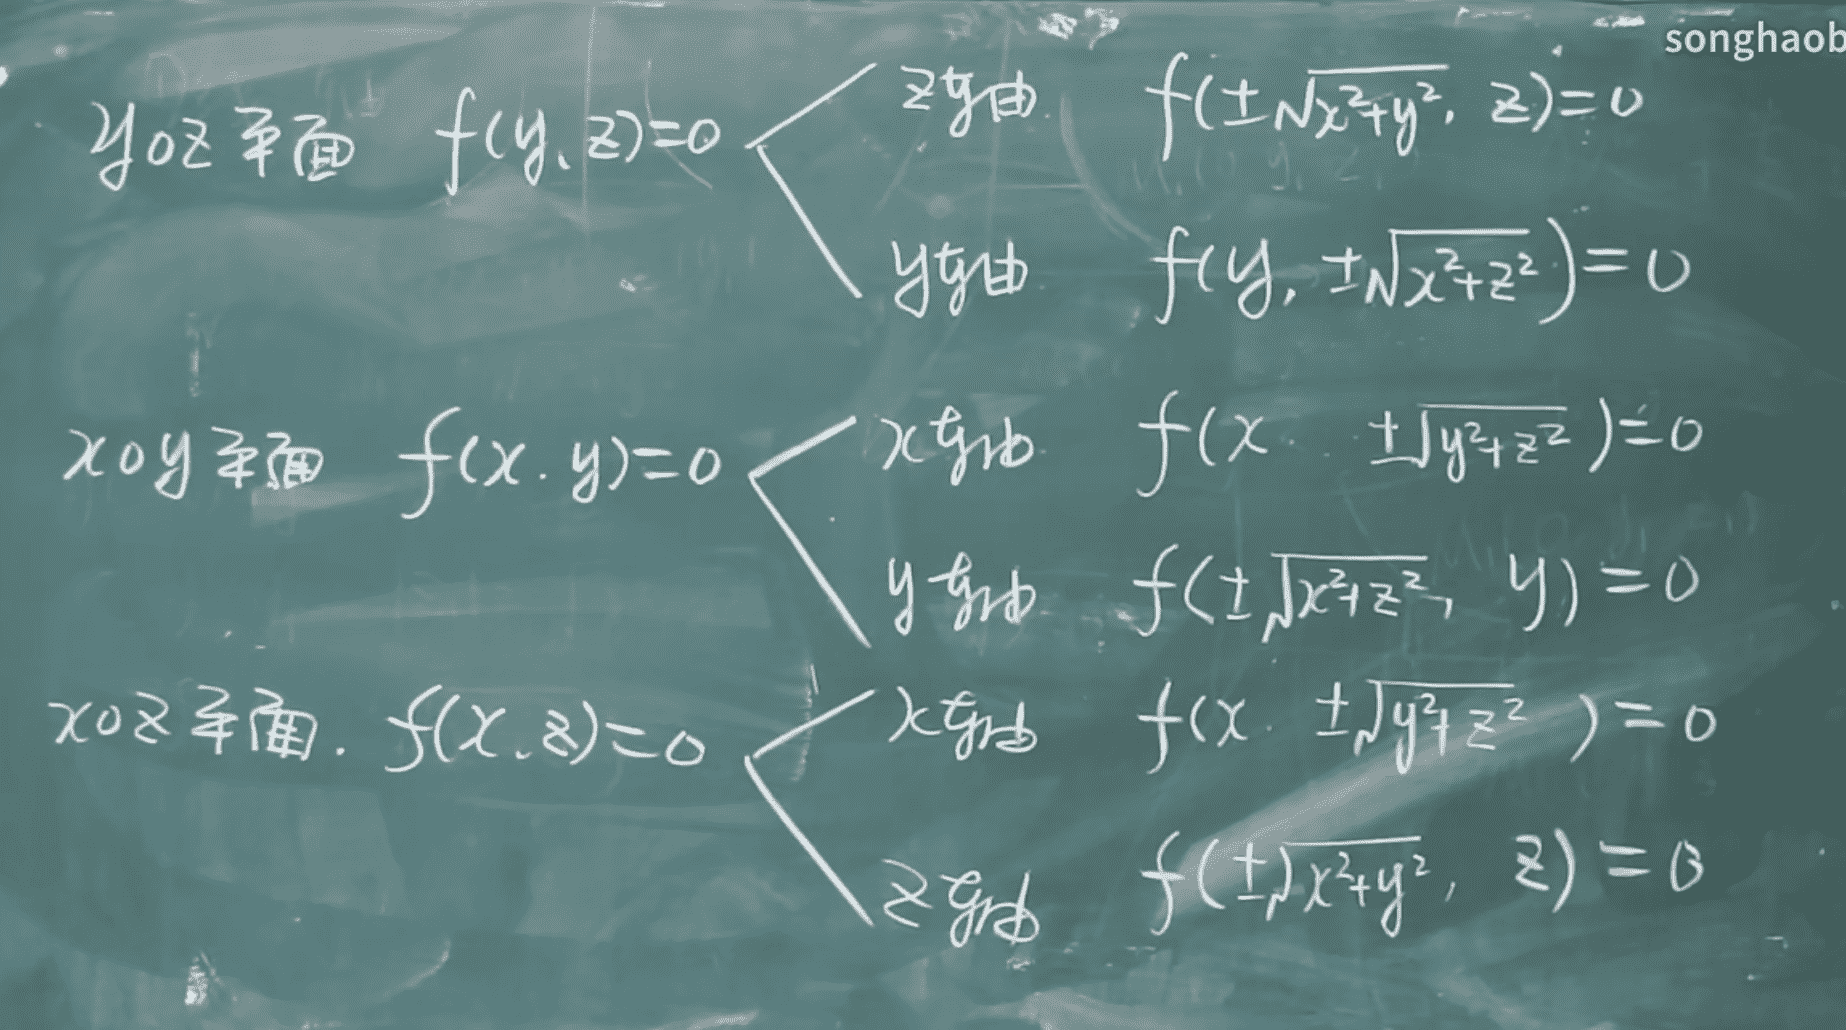 songhaob
yoz平面 f(y、z)=0 z轴 f(±√x²+y², z)=0
y轴 f(y, ±√x²+z²)=0
xoy平面 f(x.y)=0 x轴 f(x. ±√y²+z²)=0
y轴 f(±√x²+z², y)=0
xoz平面. f(x.z)=0 x轴 f(x. ±√y²+z²)=0
z轴 f(±√x²+y², z)=0